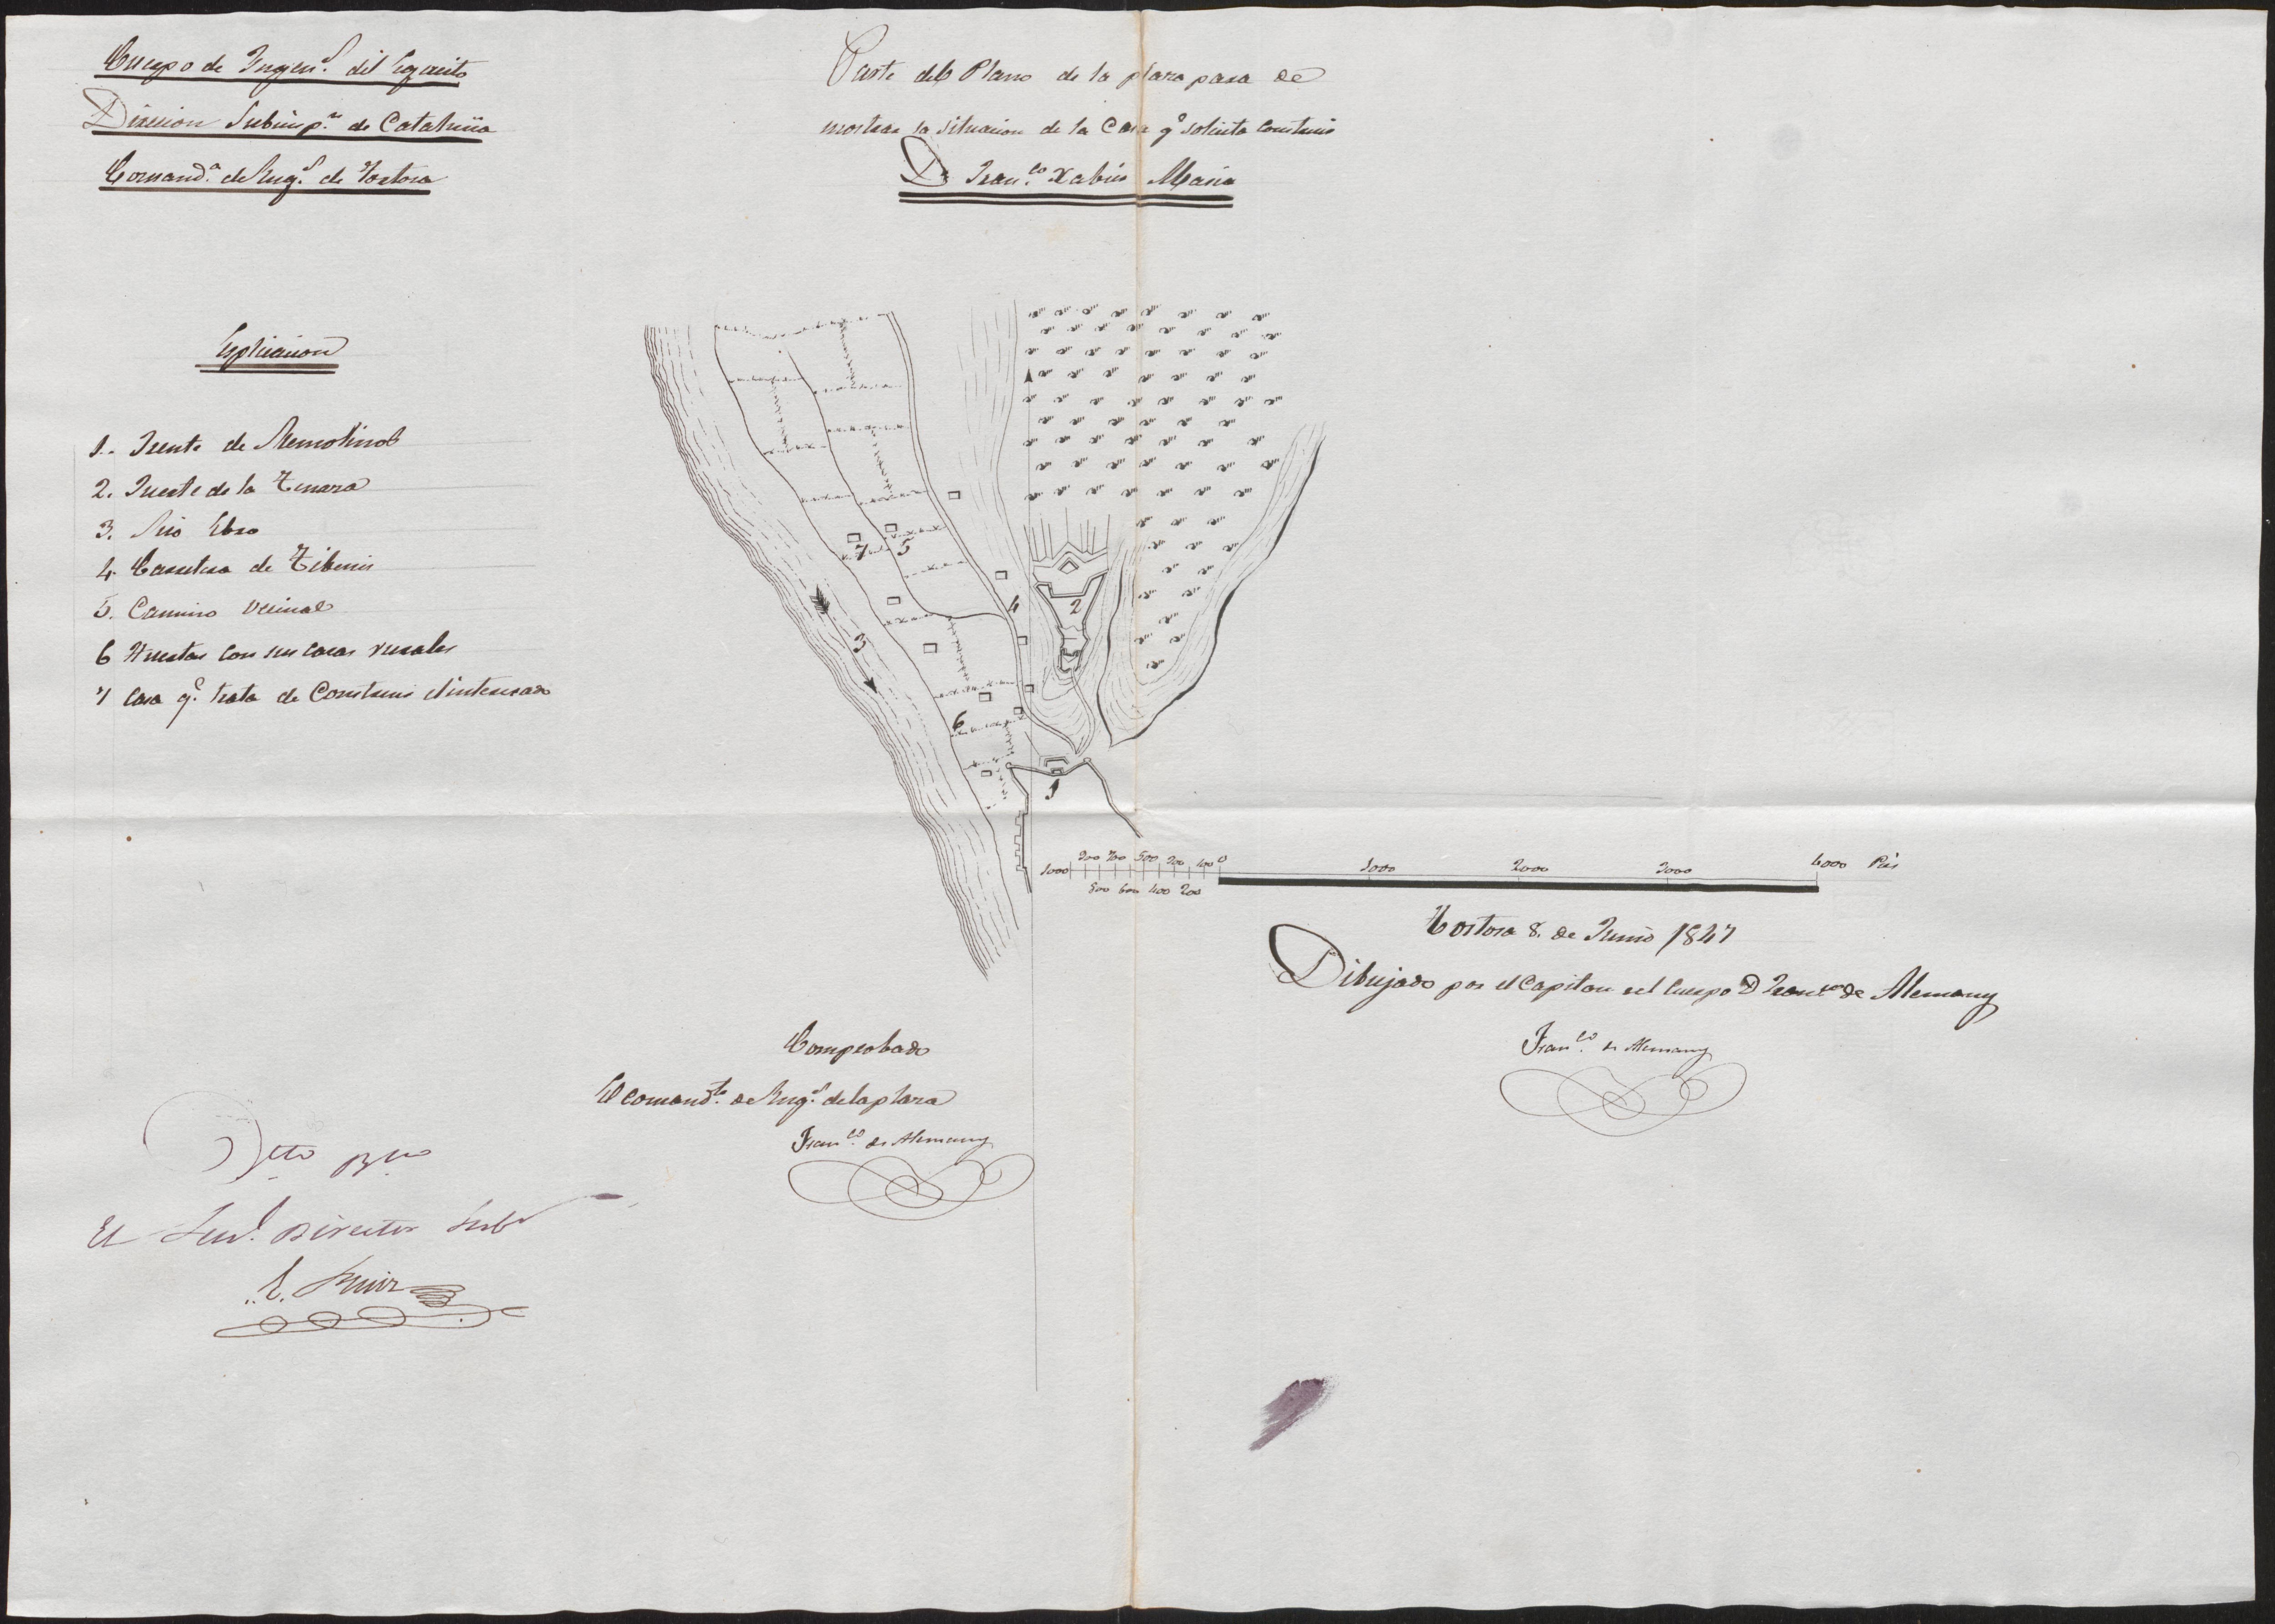 Cuerpo de Ingen.s del Egercito
Direccion Subinsp.n de Cataluña
Comand.a de Ing.s de Tortosa
Parte del Plano de la plaza para de
mostrar la situacion de la Casa q.e solicita Construir
D Fran.co Xabier Maria
Esplicacion
1. Frente de Remolinos
2. Fuerte de la Tenaza
3. Rio Ebro
4. Carretera de Tibenis
5. Camino Vecinal
6 Huertas con sus casas rurales
7 Casa q.e trata de Construir el interesado
7
5
4
2
3
6
1
1000
900 700 500 300 100 0
800 600 400 200
1000 2000 3000 4000 Pies
Tortosa 8. de Junio 1847
Dibujado por el Capitan del Cuerpo D Fran.co de Alemany
Fran.co de Alemany
Comprobado
El Comand.te de Ing.s de la plaza
Fran.co de Alemany
V.to B.no
El Director Sub